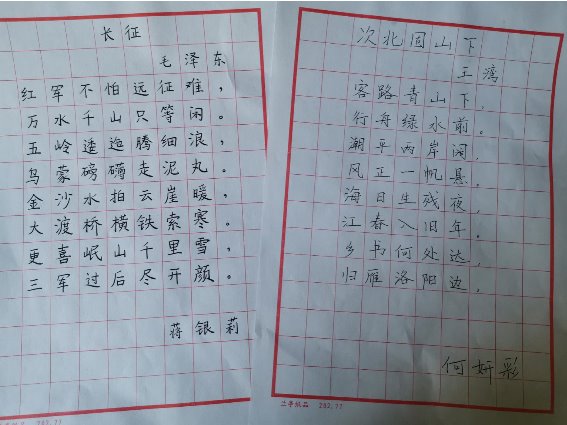 长征
毛泽东
红军不怕远征难，
万水千山只等闲。
五岭逶迤腾细浪，
乌蒙磅礴走泥丸。
金沙水拍云崖暖，
大渡桥横铁索寒。
更喜岷山千里雪，
三军过后尽开颜。
蒋银莉
次北固山下
王湾
客路青山下，
行舟绿水前。
潮平两岸阔，
风正一帆悬，
海日生残夜，
江春入旧年。
乡书何处达，
归雁洛阳边，
何妍彩
282.77